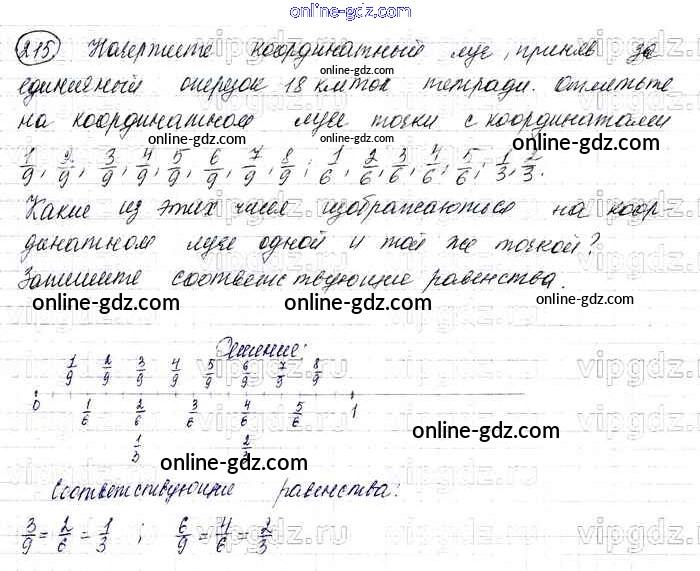 online-gdz.com
215. Начертите координатный луч, приняв за
единичный отрезок 18 клеток тетради. Отметьте
на координатном луче точки с координатами
1/9, 2/9, 3/9, 4/9, 5/9, 6/9, 7/9, 8/9; 1/6, 2/6, 3/6, 4/6, 5/6, 1/3, 2/3.
Какие из этих чисел изображаються на коор-
динатном луче одной и той же точкой?
Запишите соответствующие равенства.
online-gdz.com online-gdz.com online-gdz.com
Решение:
1/9 2/9 3/9 4/9 5/9 6/9 7/9 8/9
0 1/6 2/6 3/6 4/6 5/6 1
1/3 2/3
online-gdz.com
Соответствующие равенства:
3/9 = 2/6 = 1/3 ; 6/9 = 4/6 = 2/3
online-gdz.com